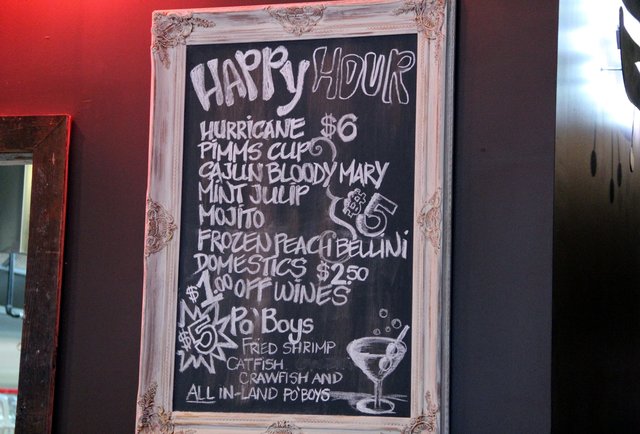 HAPPY HOUR
HURRICANE $6
PIMMS CUP
CAJUN BLOODY MARY
MINT JULIP
MOJITO
$5
FROZEN PEACH BELLINI
DOMESTICS $2.50
$1.00 OFF WINES
$5 Po'Boys
FRIED SHRIMP
CATFISH
CRAWFISH AND
ALL IN-LAND PO'BOYS